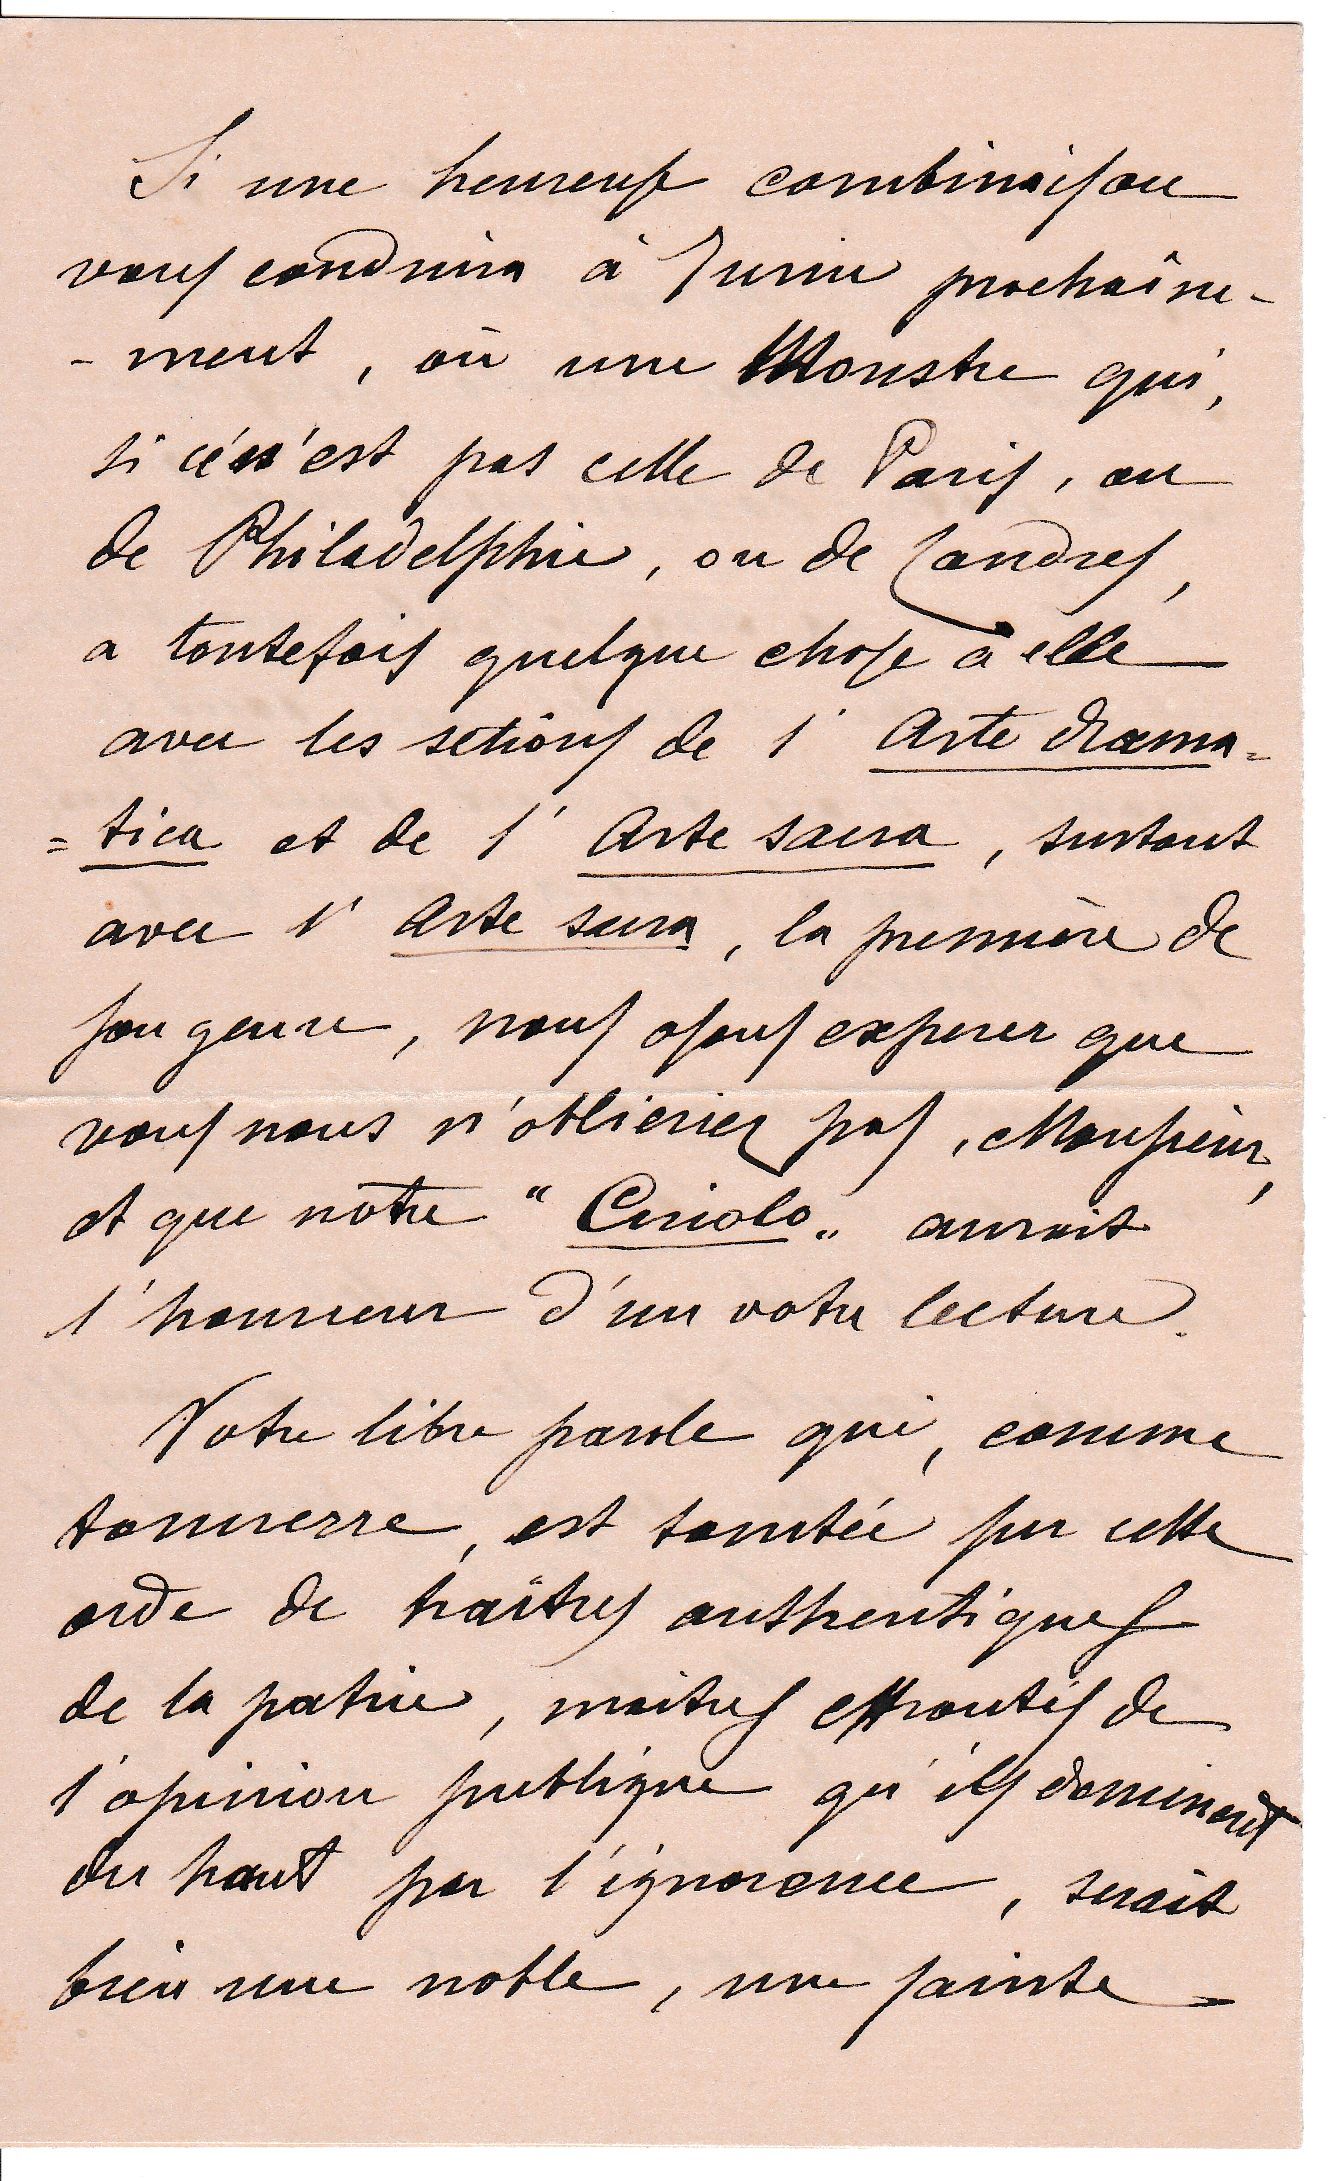 Si une heureuse combinaison
vous conduira à Turin prochaîne-
-ment, où une Monstre qui,
si ce n'est pas celle de Paris, ou
de Philadelphie, ou de Londres,
a toutefois quelque chose à elle
avec les setiôns de l' Arte drama=
=tica et de l' Arte sacra, surtout
avec l' Arte sacra, la première de
son genre, nous osons experer que
vous nous n'oblieriez pas, Monsieur,
et que nôtre "Ciriolo" aurait
l'honneur d'un votre lecture.
Votre libre parole qui, comme
tonnerre, est tombée sur cette
orde de traîtres authentiques
de la patrie, maîtres effrontés de
l'opinion publique qu'ils dominent
du haut par l'ignorence, serait
bien une noble, une sainte